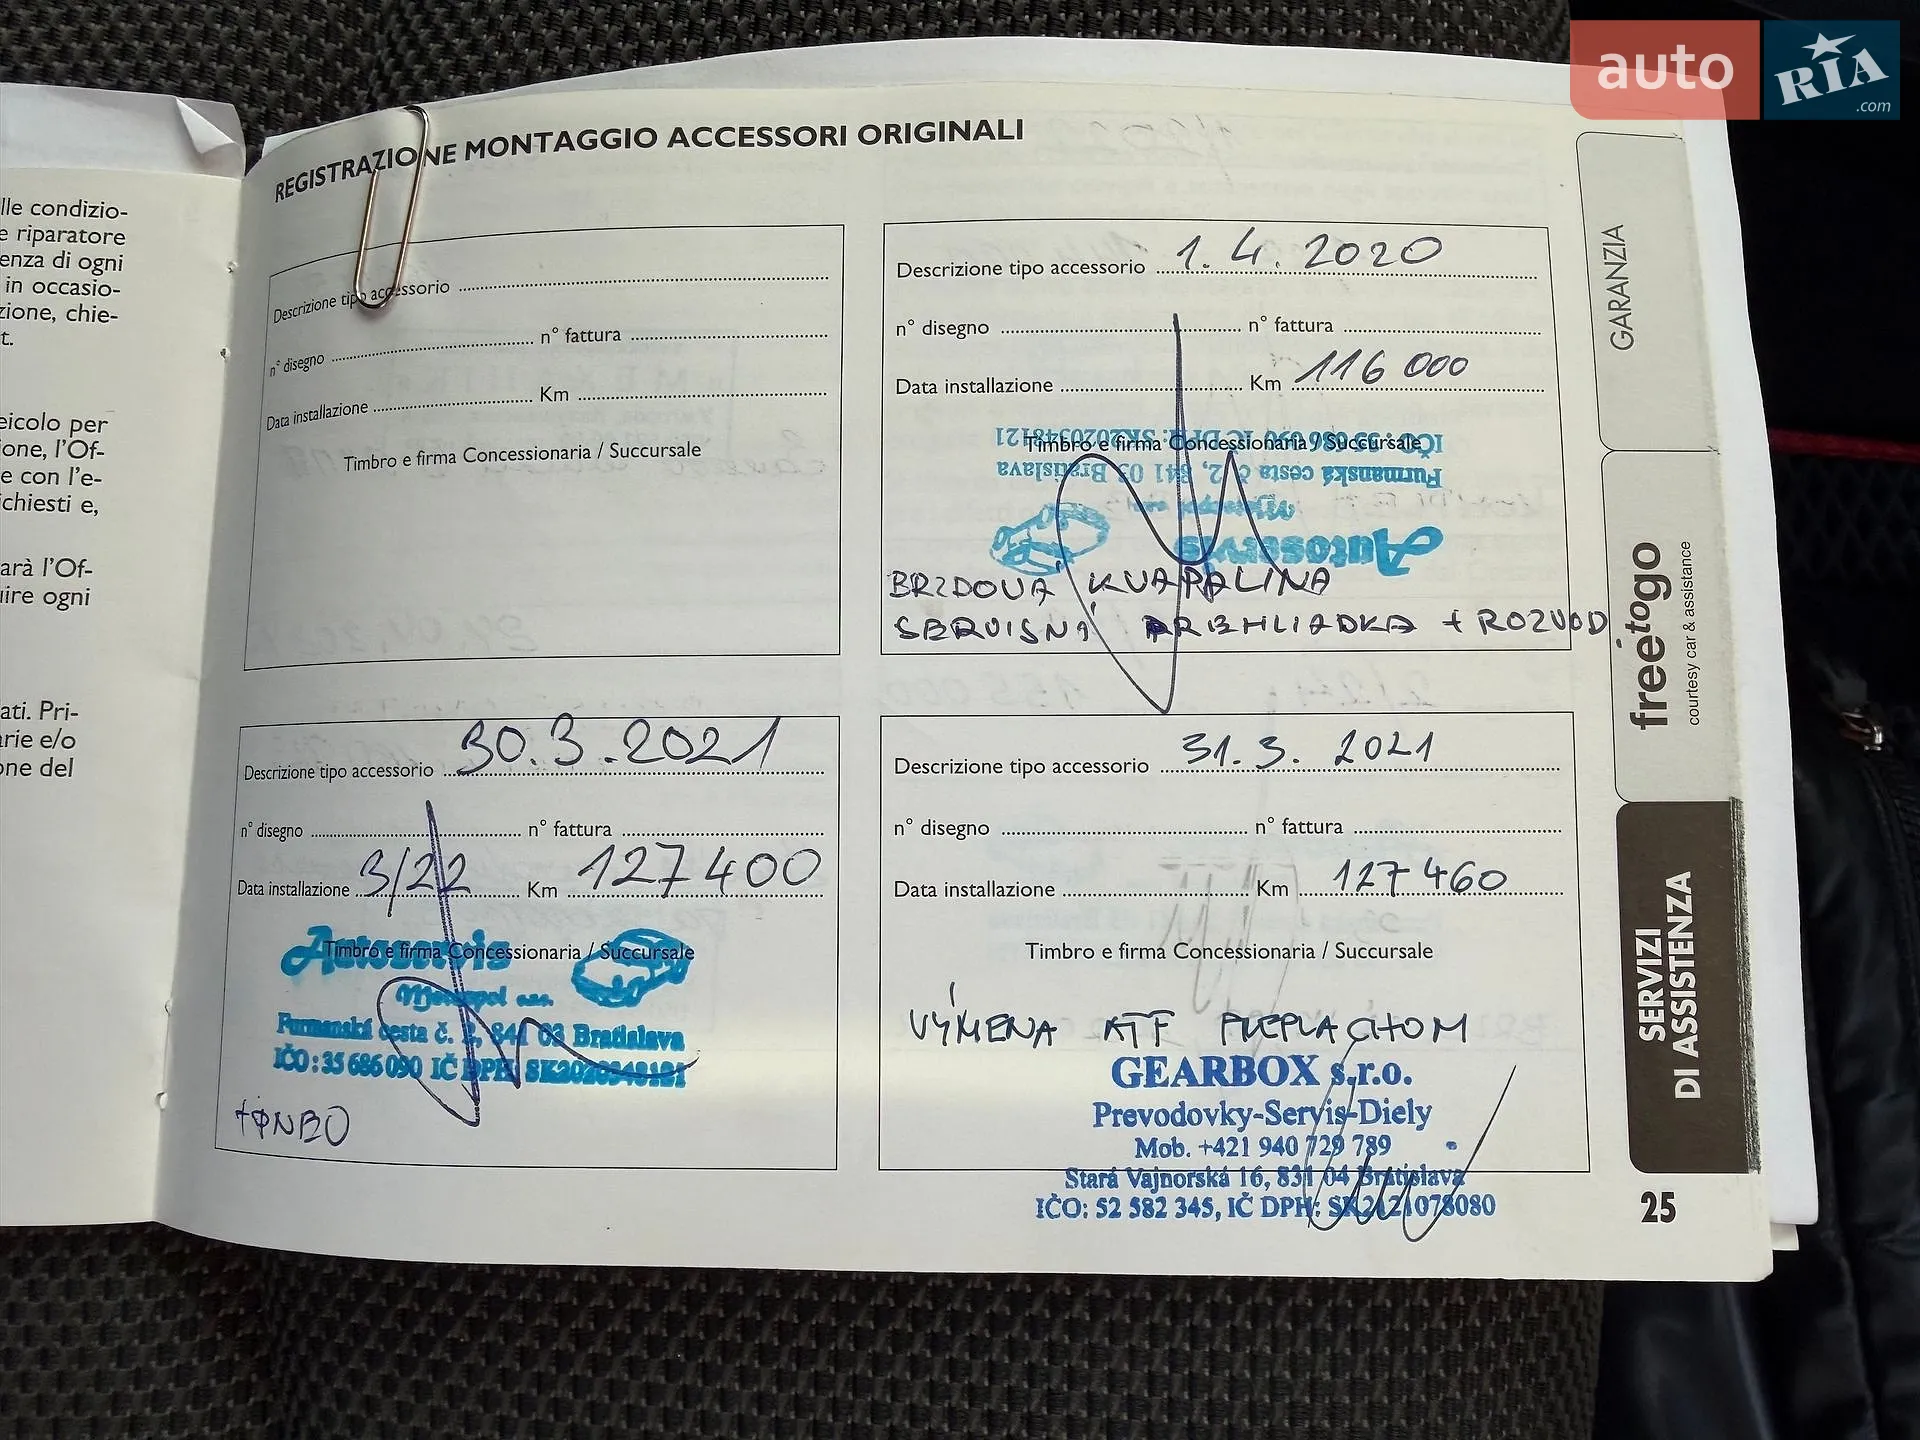 auto RIA .com
lle condizio-
e riparatore
enza di ogni
in occasio-
zione, chie-
t.
eicolo per
ione, l'Of-
e con l'e-
ichiesti e,
arà l'Of-
uire ogni
ati. Pri-
arie e/o
one del
REGISTRAZIONE MONTAGGIO ACCESSORI ORIGINALI
Descrizione tipo accessorio
n° disegno n° fattura
Data installazione Km
Timbro e firma Concessionaria / Succursale
Descrizione tipo accessorio 1. 4. 2020
n° disegno n° fattura
Data installazione Km 116 000
Timbro e firma Concessionaria / Succursale
Autoservis
Furmanská cesta č. 2, 841 03 Bratislava
IČO: 35 686 090 IČ DPH: SK2020348121
BRZDOVÁ KVAPALINA
SERVISNÁ PREHLIADKA + ROZVOD
Descrizione tipo accessorio 30.3.2021
n° disegno n° fattura
Data installazione 3/22 Km 127400
Timbro e firma Concessionaria / Succursale
Autoservis
Furmanská cesta č. 2, 841 03 Bratislava
IČO: 35 686 090 IČ DPH: SK2020348121
Descrizione tipo accessorio 31. 3. 2021
n° disegno n° fattura
Data installazione Km 127 460
Timbro e firma Concessionaria / Succursale
VÝMENA ATF PREPLACHOM
GEARBOX s.r.o.
Prevodovky-Servis-Diely
Mob. +421 940 729 789
Stará Vajnorská 16, 831 04 Bratislava
IČO: 52 582 345, IČ DPH: SK2121078080
GARANZIA
freetogo
courtesy car & assistance
SERVIZI
DI ASSISTENZA
25